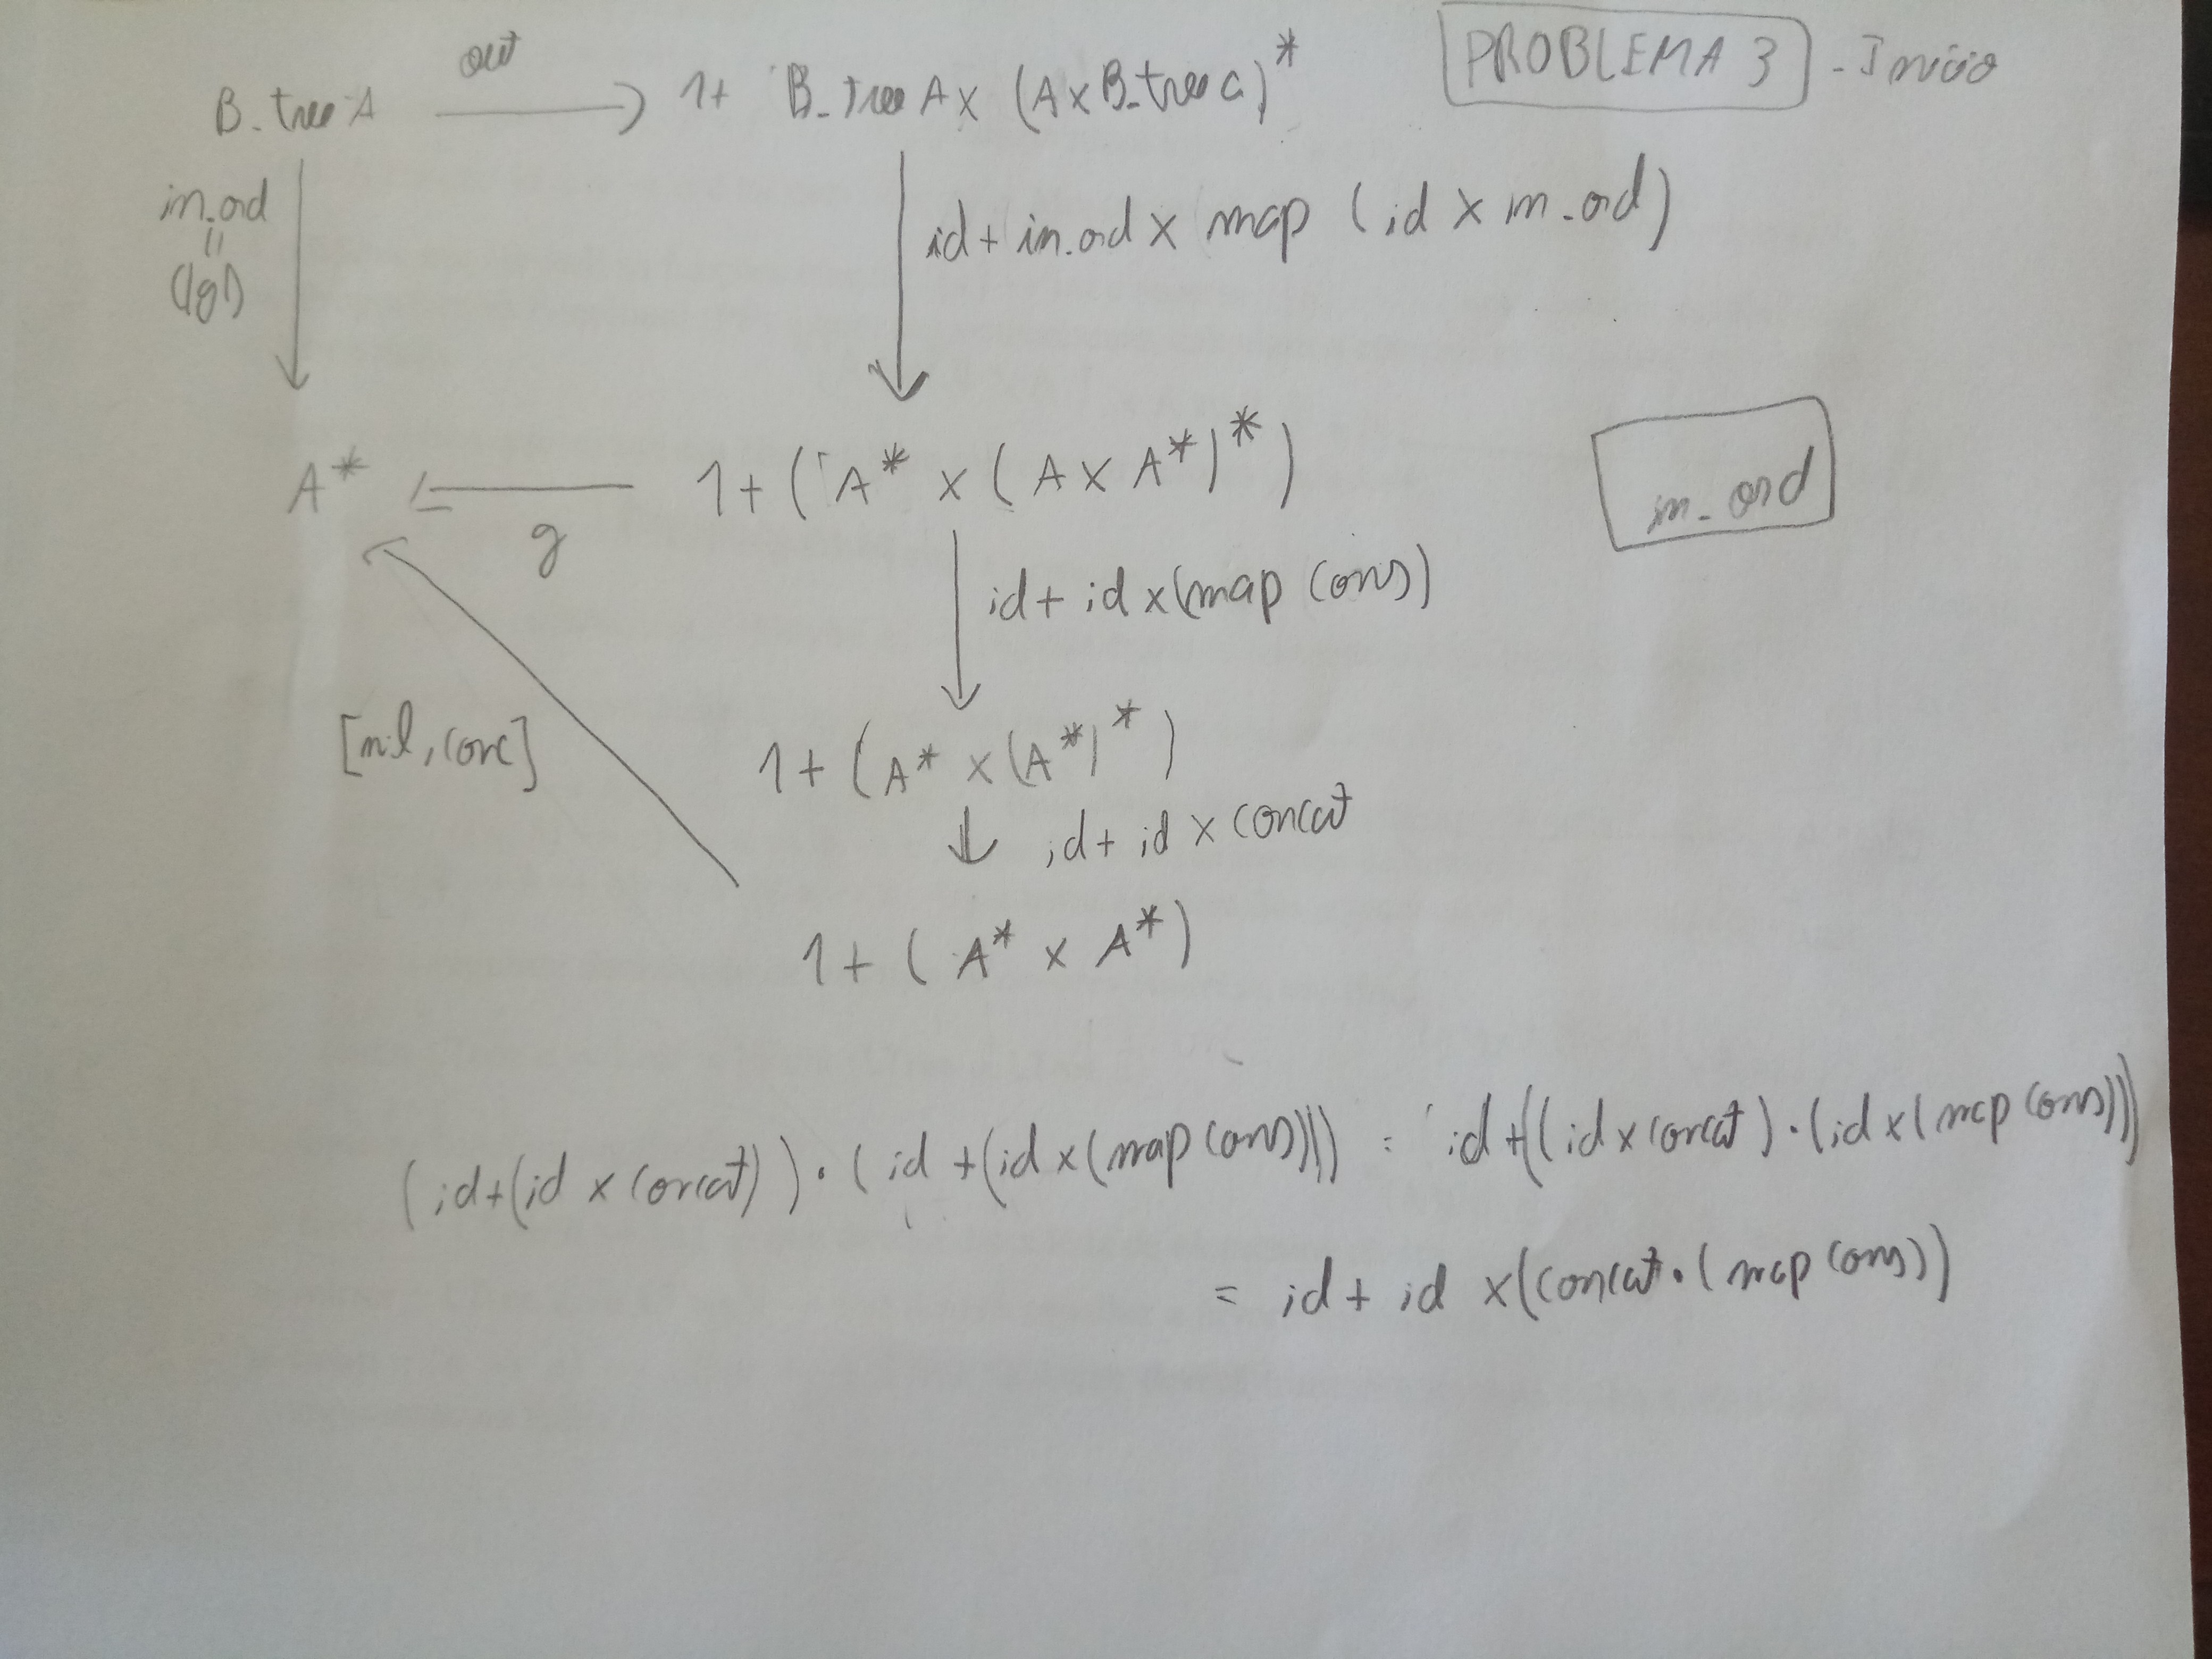 PROBLEMA 3 - Início
out
B_tree A 1 + B_tree A x (A x B_tree a)*
in_ord
=
(|g|)
id + in_ord x map (id x in_ord)
A* 1 + (A* x (A x A*)*)
g
in_ord
id + id x (map cons)
[nil, conc]
1 + (A* x (A*)*)
id + id x concat
1 + (A* x A*)
(id + (id x concat)) . (id + (id x (map cons))) = id + ((id x concat) . (id x (map cons)))
= id + id x (concat . (map cons))